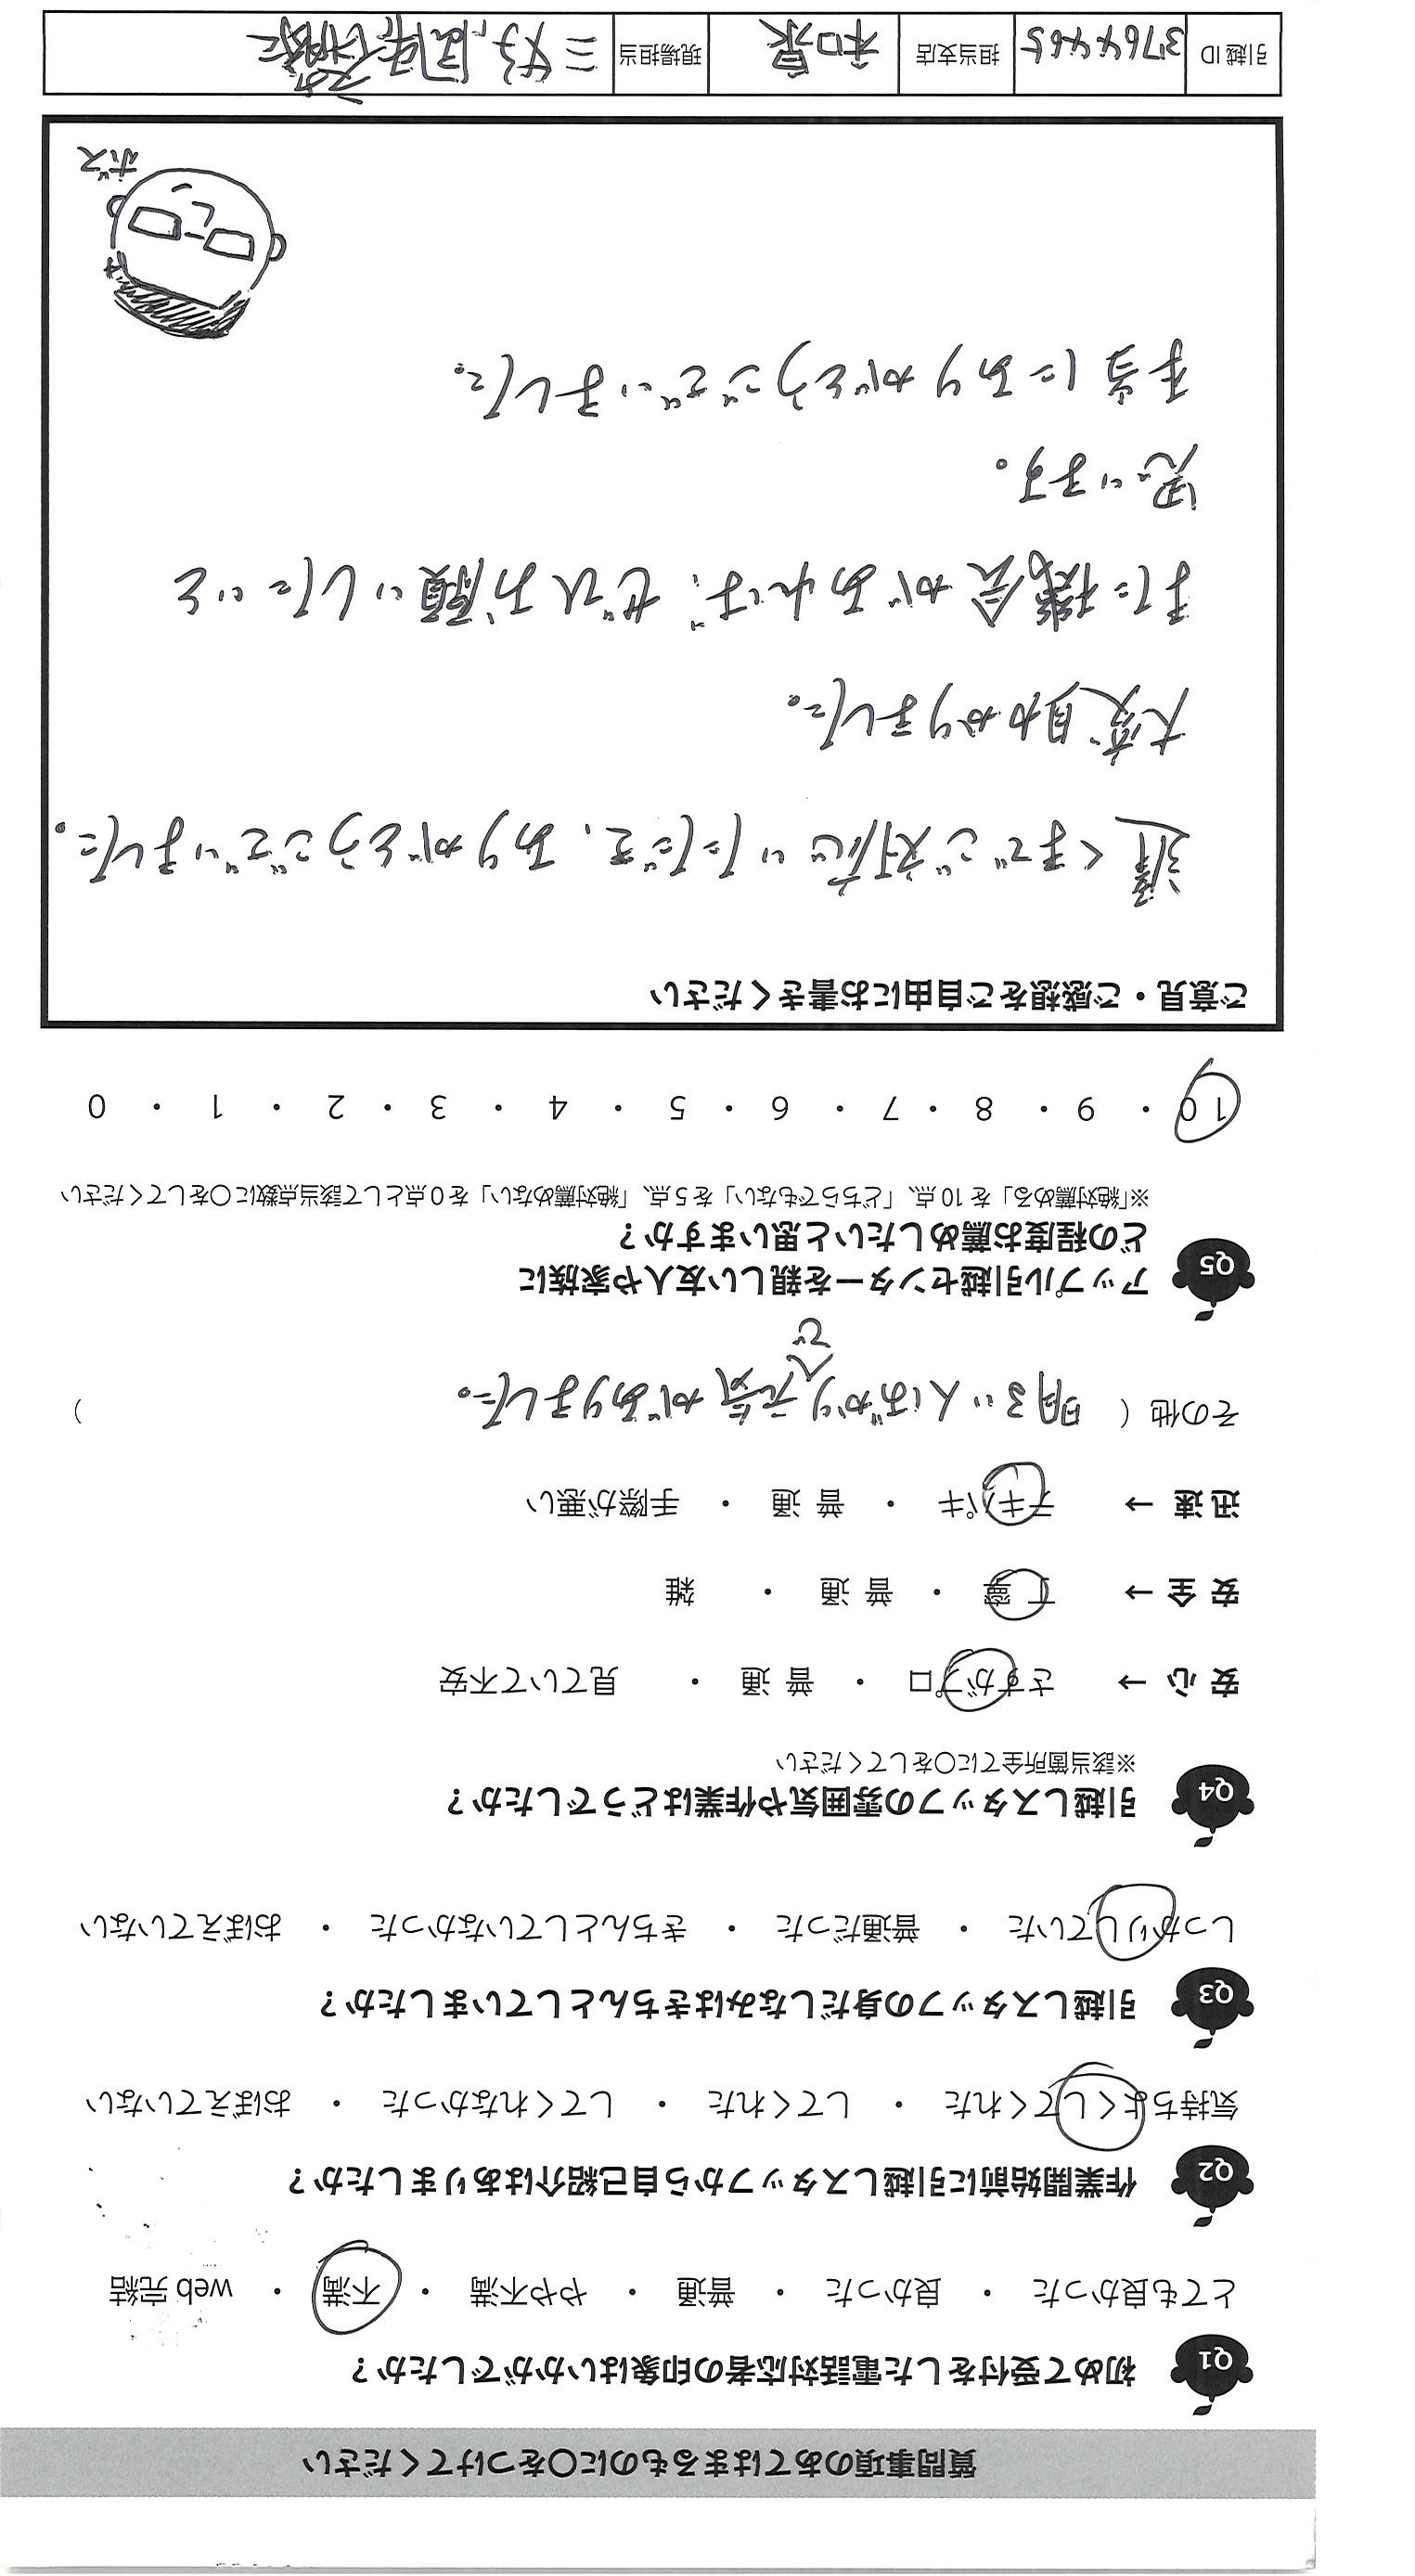 質問事項のあてはまるものに〇をつけてください
Q1 初めて受付をした電話対応者の印象はいかがでしたか？
とても良かった ・ 良かった ・ 普通 ・ やや不満 ・ 不満 ・ web 完結
Q2 作業開始前に引越しスタッフから自己紹介はありましたか？
気持ちよくしてくれた ・ してくれた ・ してくれなかった ・ おぼえていない
Q3 引越しスタッフの身だしなみはきちんとしていましたか？
しっかりしていた ・ 普通だった ・ きちんとしていなかった ・ おぼえていない
Q4 引越しスタッフの雰囲気や作業はどうでしたか？
※該当箇所全てに〇をしてください
安 心 → さすがプロ ・ 普 通 ・ 見ていて不安
安 全 → 丁 寧 ・ 普 通 ・ 雑
迅 速 → テキパキ ・ 普 通 ・ 手際が悪い
その他（ 明るい人ばかりで元気がありました。 ）
Q5 アップル引越センターを親しい友人や家族に
どの程度お薦めしたいと思いますか？
※「絶対薦める」を 10 点、「どちらでもない」を 5 点、「絶対薦めない」を 0 点として該当点数に〇をしてください
10 ・ 9 ・ 8 ・ 7 ・ 6 ・ 5 ・ 4 ・ 3 ・ 2 ・ 1 ・ 0
ご意見・ご感想をご自由にお書きください
遅くまでご対応いただき、ありがとうございました。
大変助かりました。
また機会があれば、ぜひお願いしたいと
思います。
本当にありがとうございました。
ボス
引越 ID 3764465 担当支店 和泉 現場担当 三好,